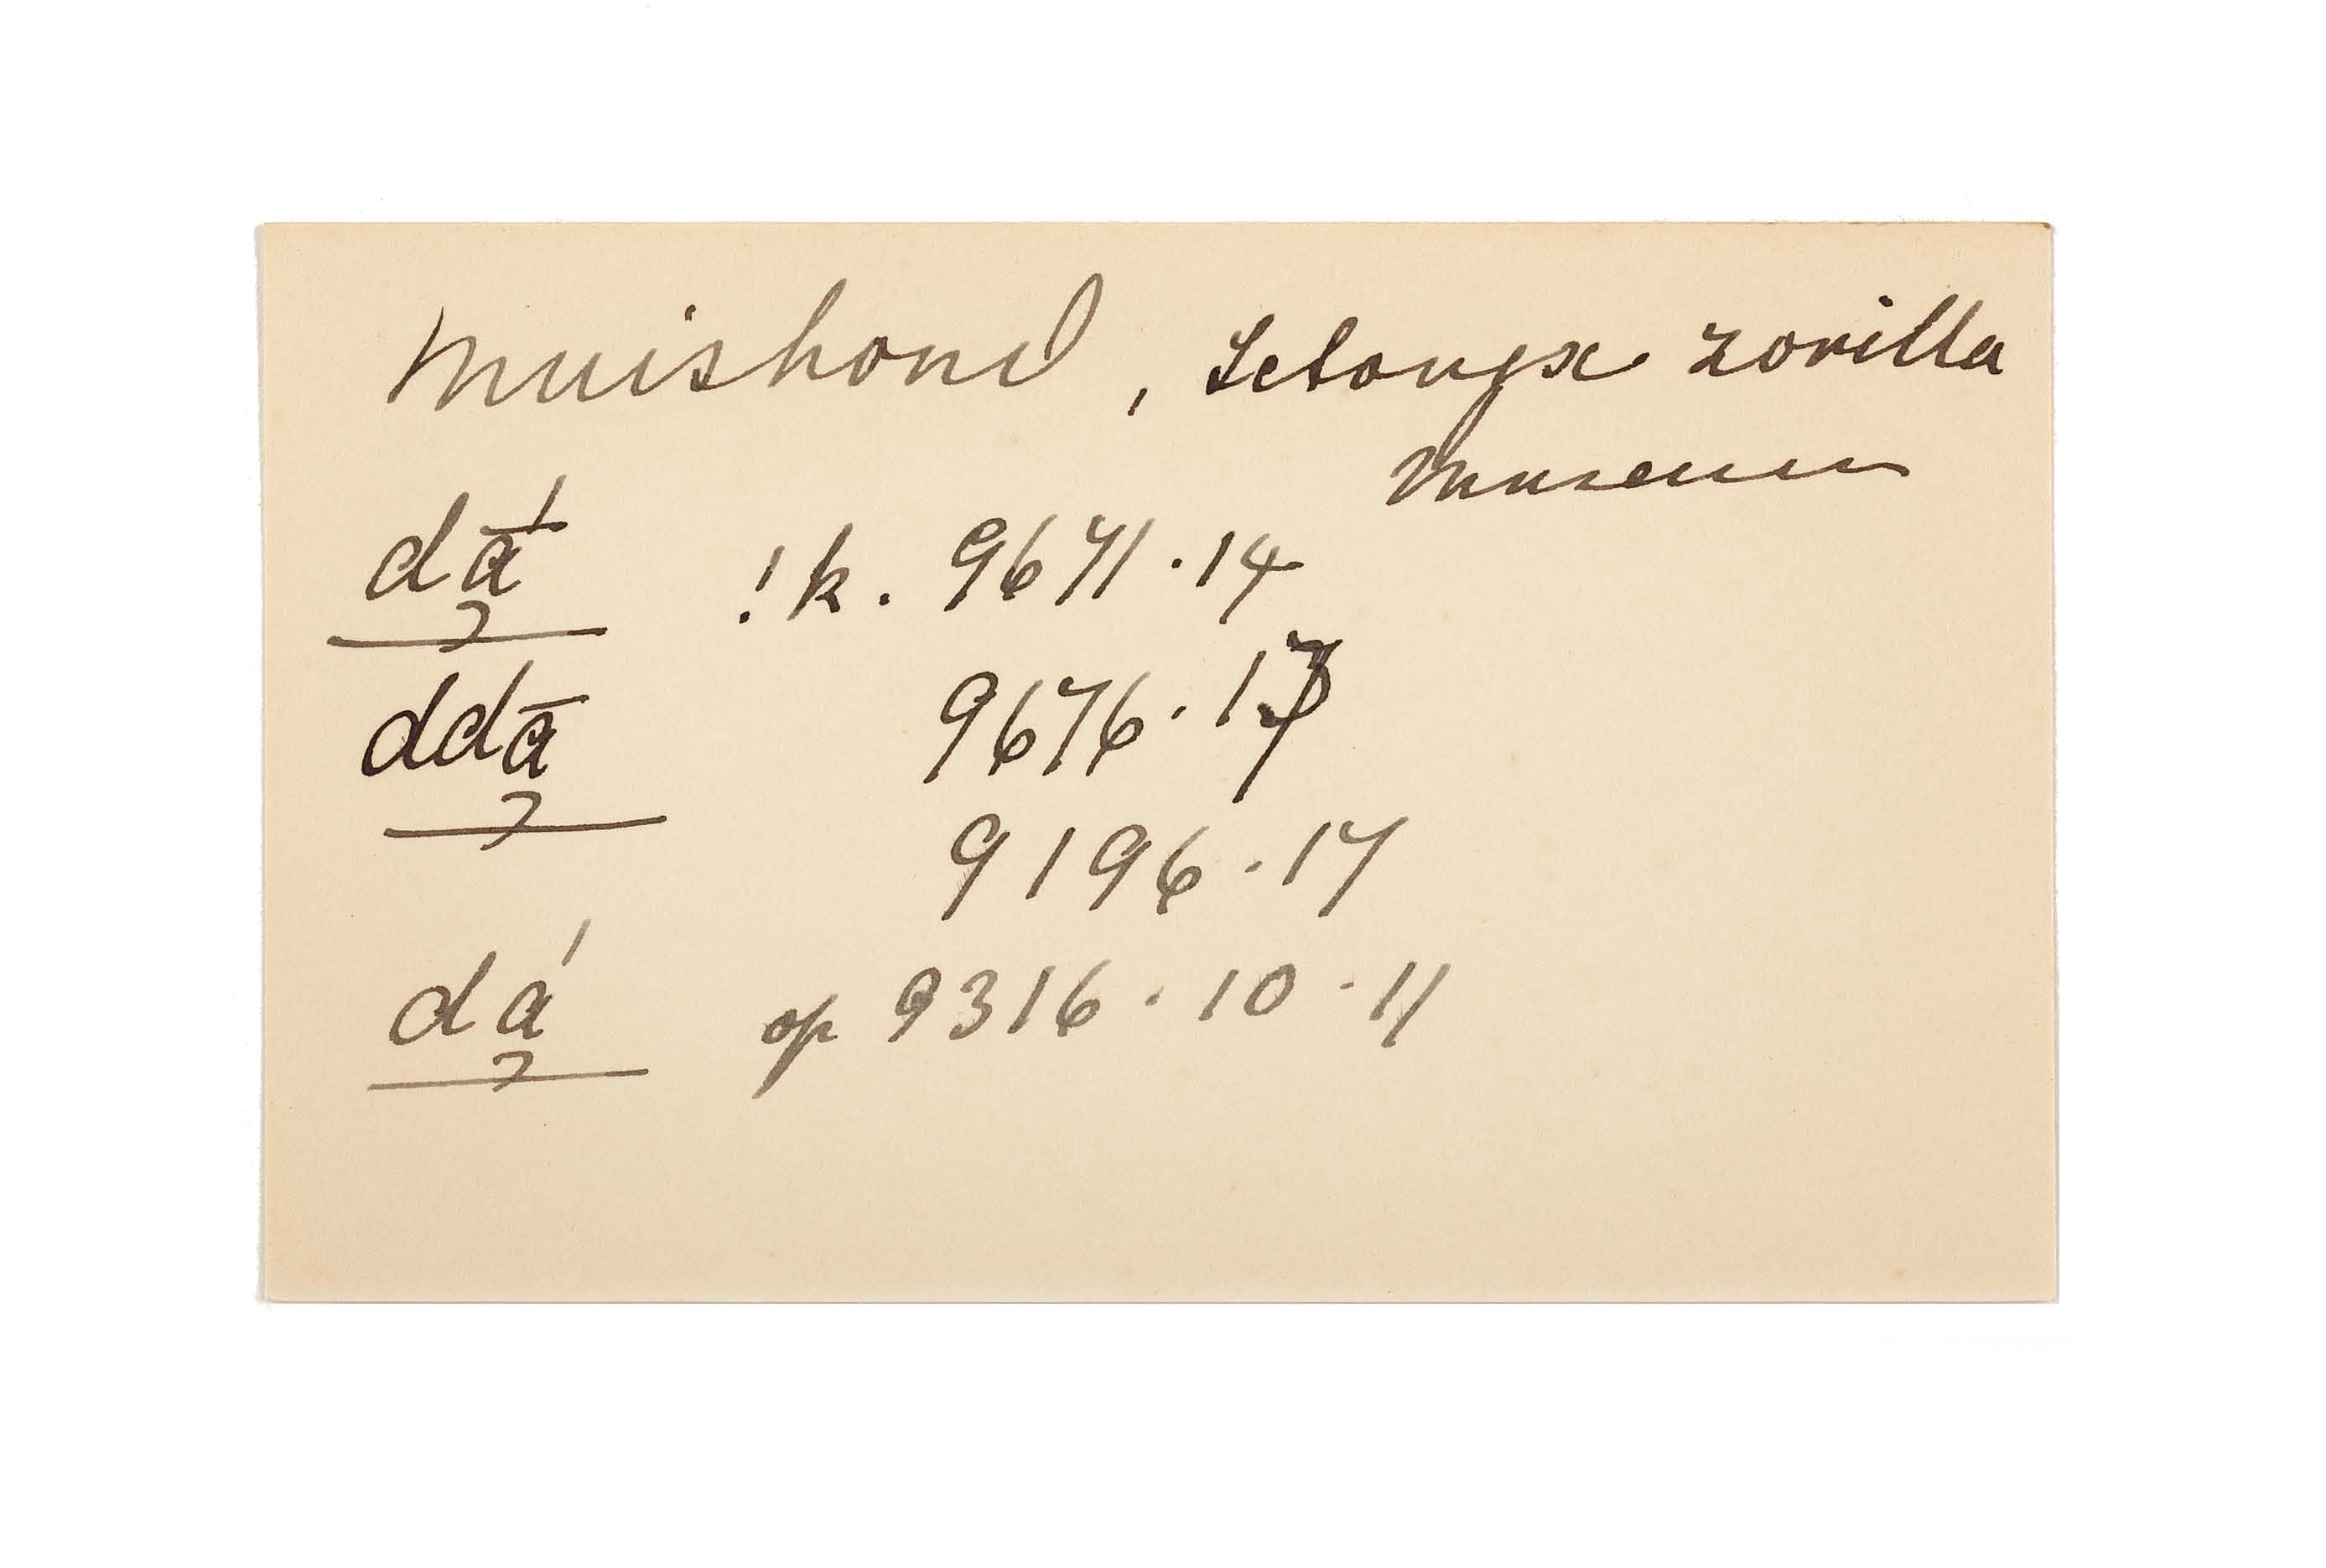 Muishond, Ictonyx zorilla
Museum
dā̹́ !k. 9671·14
ddā̹ 9676·
9196·17
dá̹ op 9316·10·11